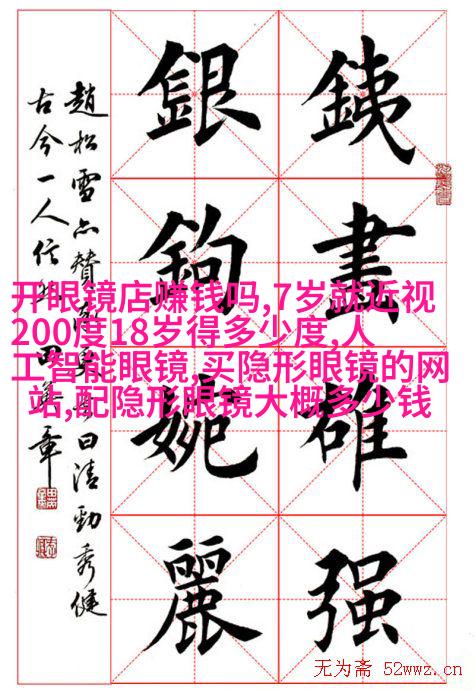 开眼镜店赚钱吗,7岁就近视
200度18岁得多少度,人
工智能眼镜,买隐形眼镜的网
站,配隐形眼镜大概多少钱
銕畫雄强
銀鉤婉麗
趙松雪亦賛曰清勁秀健
古今一人信田英章
无为斋 52wwz.cn